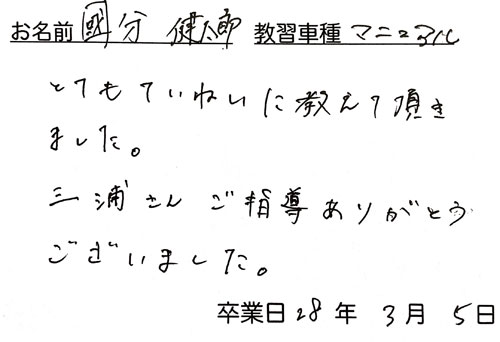 お名前 國分 健太郎 教習車種 マニュアル
とてもていねいに教えて頂き
ました。
三浦さんご指導ありがとう
ございました。
卒業日28年 3月 5日